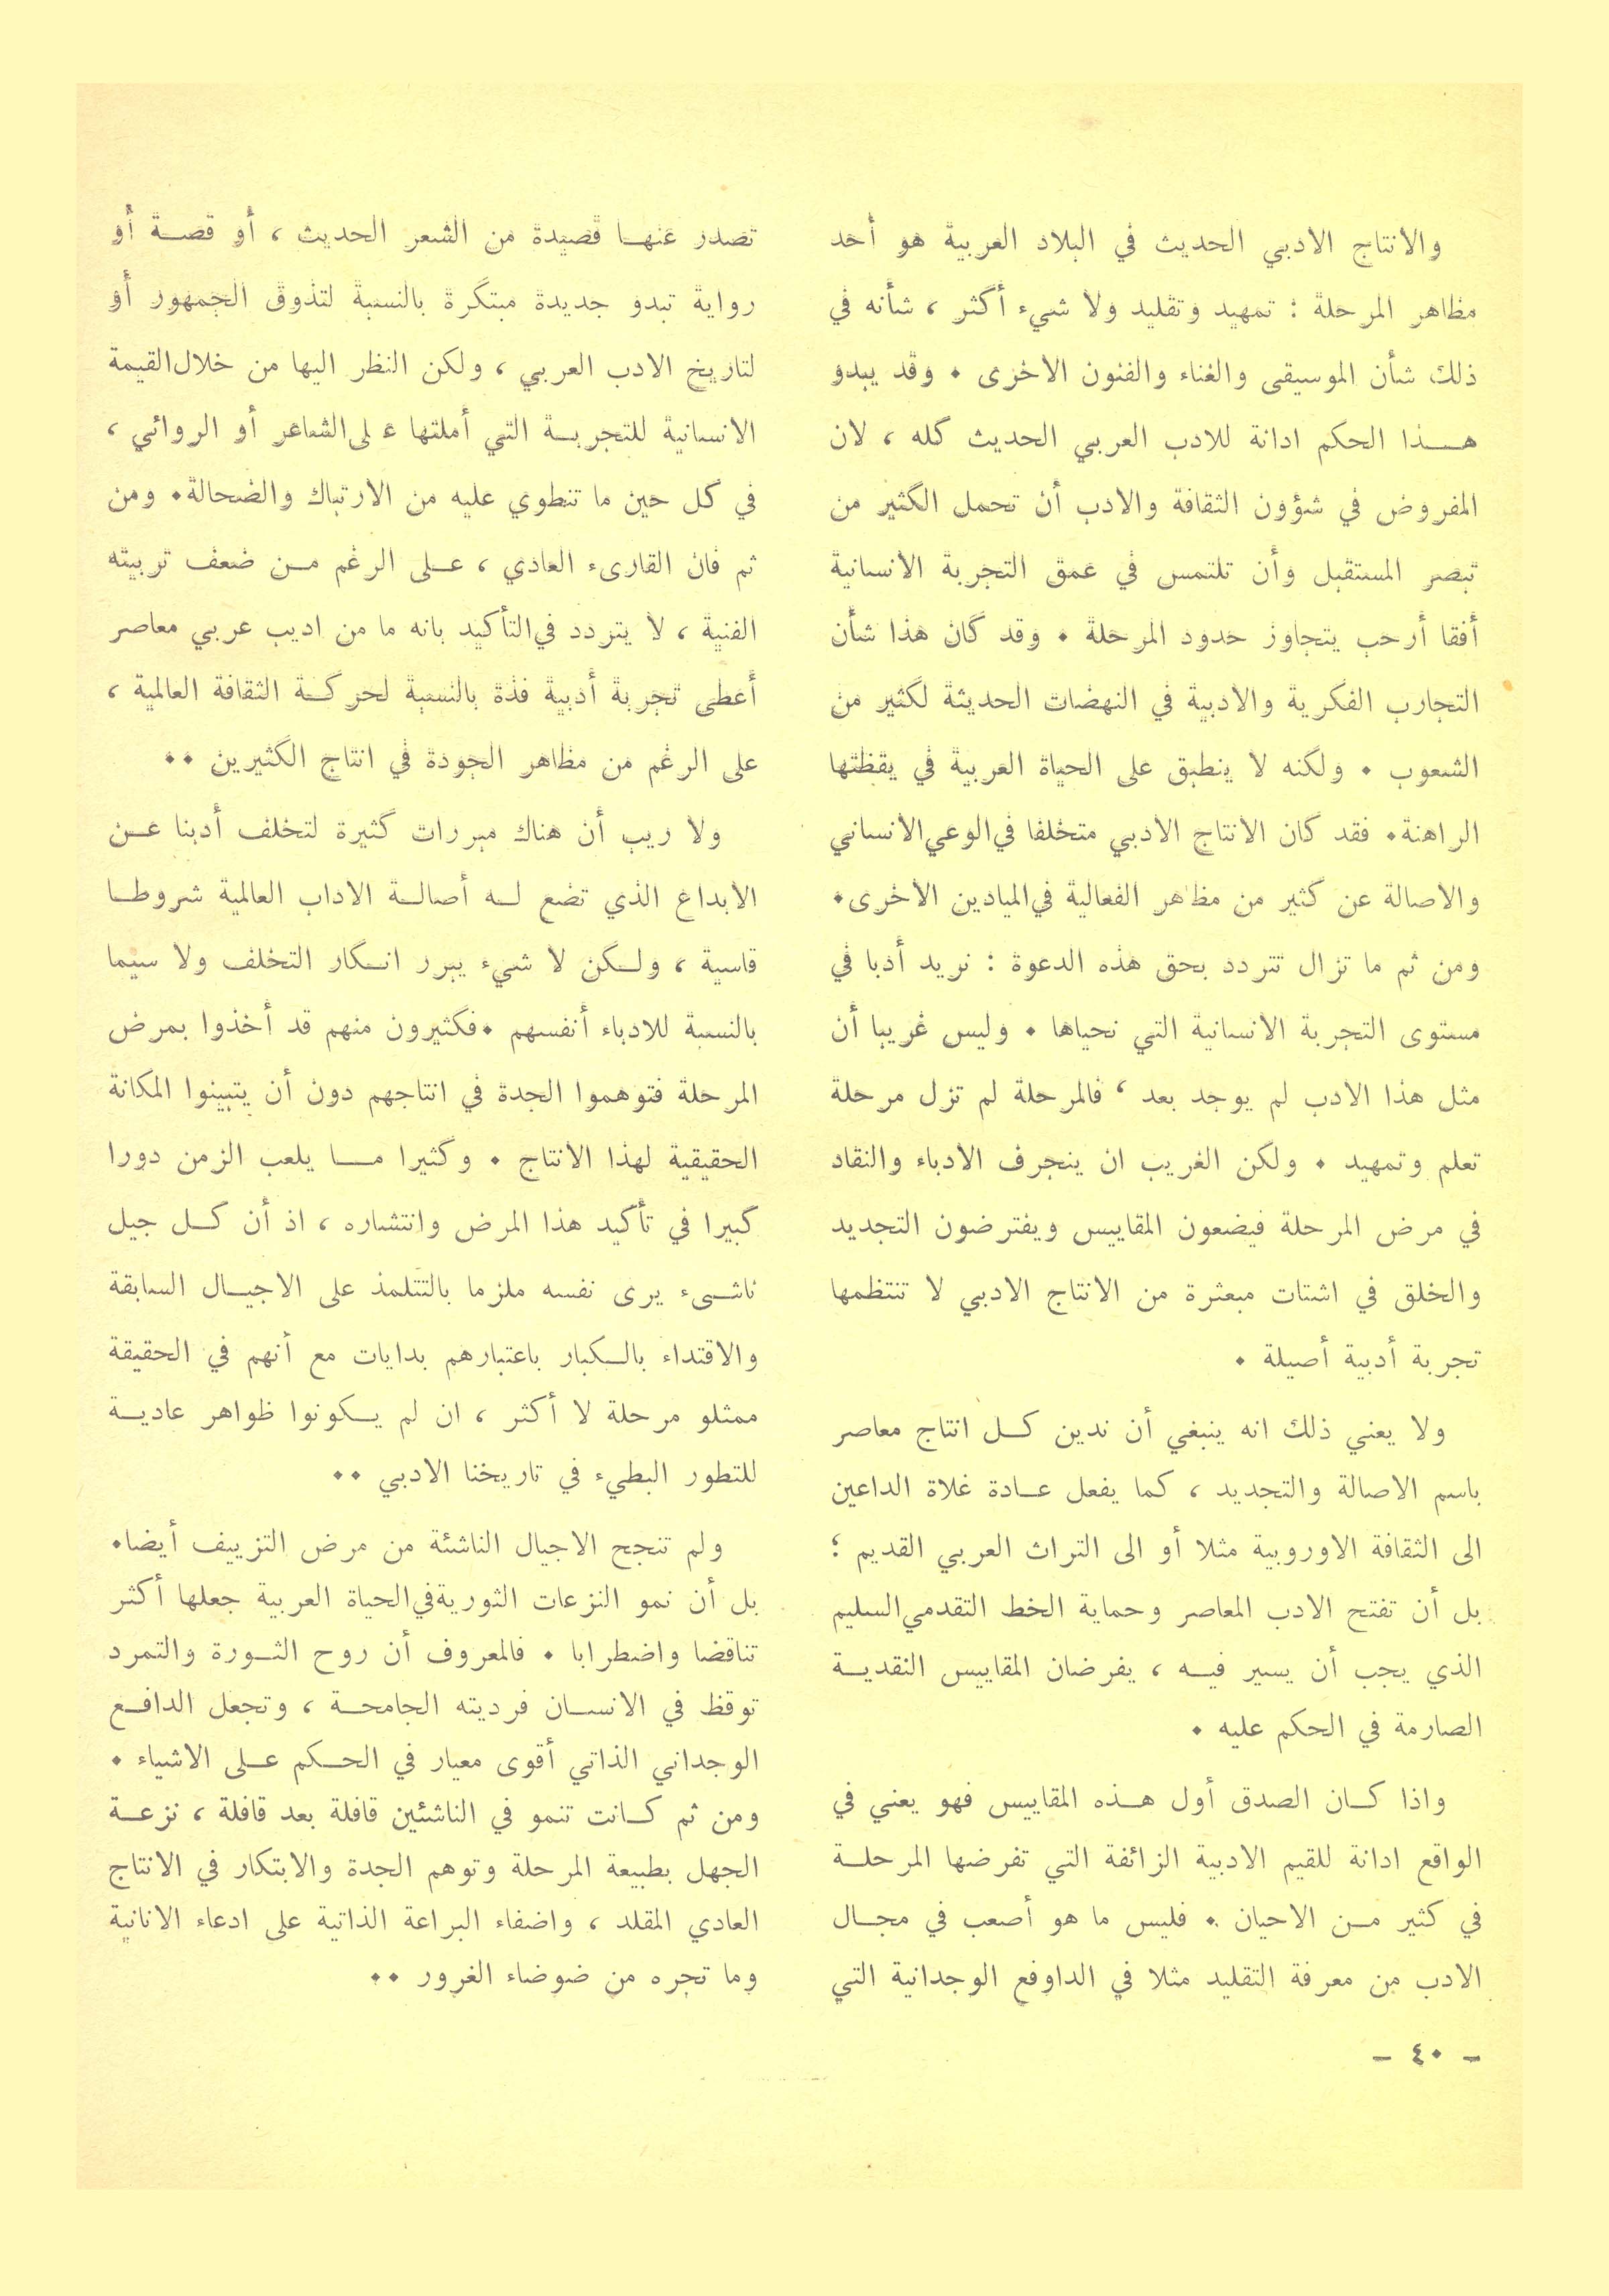 والانتاج الادبي الحديث في البلاد العربية هو أحد
مظاهر المرحلة : تمهيد وتقليد ولا شيء أكثر ، شأنه في
ذلك شأن الموسيقى والغناء والفنون الاخرى . وقد يبدو
هذا الحكم ادانة للادب العربي الحديث كله ، لان
المفروض في شؤون الثقافة والادب أن تحمل الكثير من
تبصر المستقبل وأن تلتمس في عمق التجربة الانسانية
أفقا أرحب يتجاوز حدود المرحلة . وقد كان هذا شأن
التجارب الفكرية والادبية في النهضات الحديثة لكثير من
الشعوب . ولكنه لا ينطبق على الحياة العربية في يقظتها
الراهنة. فقد كان الانتاج الادبي متخلفا في الوعي الانساني
والاصالة عن كثير من مظاهر الفعالية في الميادين الاخرى.
ومن ثم ما تزال تتردد بحق هذه الدعوة : نريد أدبا في
مستوى التجربة الانسانية التي نحياها . وليس غريبا أن
مثل هذا الادب لم يوجد بعد ، فالمرحلة لم تزل مرحلة
تعلم وتمهيد . ولكن الغريب ان ينجرف الادباء والنقاد
في مرض المرحلة فيضعون المقاييس ويفترضون التجديد
والخلق في اشتات مبعثرة من الانتاج الادبي لا تنتظمها
تجربة أدبية أصيلة .
ولا يعني ذلك انه ينبغي أن ندين كل انتاج معاصر
باسم الاصالة والتجديد ، كما يفعل عادة غلاة الداعين
الى الثقافة الاوروبية مثلا أو الى التراث العربي القديم ؛
بل أن تفتح الادب المعاصر وحماية الخط التقدمي السليم
الذي يجب أن يسير فيه ، يفرضان المقاييس النقدية
الصارمة في الحكم عليه .
واذا كان الصدق أول هذه المقاييس فهو يعني في
الواقع ادانة للقيم الادبية الزائفة التي تفرضها المرحلة
في كثير من الاحيان . فليس ما هو أصعب في مجال
الادب من معرفة التقليد مثلا في الداوفع الوجدانية التي
تصدر عنها قصيدة من الشعر الحديث ، أو قصة أو
رواية تبدو جديدة مبتكرة بالنسبة لتذوق الجمهور أو
لتاريخ الادب العربي ، ولكن النظر اليها من خلال القيمة
الانسانية للتجربة التي أملتها ع لى الشاعر أو الروائي ،
في كل حين ما تنطوي عليه من الارتباك والضحالة. ومن
ثم فان القارىء العادي ، على الرغم من ضعف تربيته
الفنية ، لا يتردد في التأكيد بانه ما من اديب عربي معاصر
أعطى تجربة أدبية فذة بالنسبة لحركة الثقافة العالمية ،
على الرغم من مظاهر الجودة في انتاج الكثيرين ..
ولا ريب أن هناك مبررات كثيرة لتخلف أدبنا عن
الابداع الذي تضع له أصالة الاداب العالمية شروطا
قاسية ، ولكن لا شيء يبرر انكار التخلف ولا سيما
بالنسبة للادباء أنفسهم .فكثيرون منهم قد أخذوا بمرض
المرحلة فتوهموا الجدة في انتاجهم دون أن يتبينوا المكانة
الحقيقية لهذا الانتاج . وكثيرا ما يلعب الزمن دورا
كبيرا في تأكيد هذا المرض وانتشاره ، اذ أن كل جيل
ناشىء يرى نفسه ملزما بالتتلمذ على الاجيال السابقة
والاقتداء بالكبار باعتبارهم بدايات مع أنهم في الحقيقة
ممثلو مرحلة لا أكثر ، ان لم يكونوا ظواهر عادية
للتطور البطيء في تاريخنا الادبي ..
ولم تنجح الاجيال الناشئة من مرض التزييف أيضا.
بل أن نمو النزعات الثورية في الحياة العربية جعلها أكثر
تناقضا واضطرابا . فالمعروف أن روح الثورة والتمرد
توقظ في الانسان فرديته الجامحة ، وتجعل الدافع
الوجداني الذاتي أقوى معيار في الحكم على الاشياء .
ومن ثم كانت تنمو في الناشئين قافلة بعد قافلة ، نزعة
الجهل بطبيعة المرحلة وتوهم الجدة والابتكار في الانتاج
العادي المقلد ، واضفاء البراعة الذاتية على ادعاء الانانية
وما تجره من ضوضاء الغرور ..
- ٤٠ -